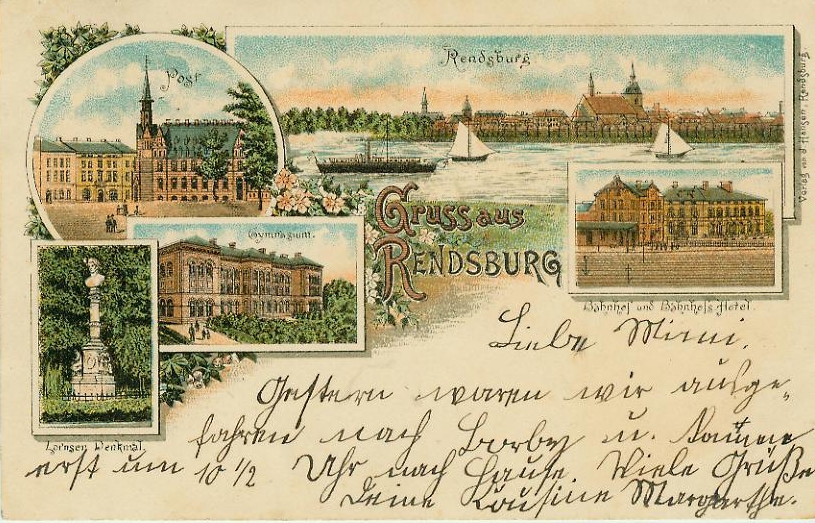 Post
Rendsburg
Verlag von J. Hansen, Rendsburg.
Gruss aus
RENDSBURG
Gymnasium.
Bahnhof und Bahnhofs Hotel.
Lornsen Denkmal.
Liebe Mimi.
Gestern waren wir ausge-
fahren nach Borby u. kamen
erst um 10 1/2 Uhr nach Hause. Viele Grüße
Deine Kousine Margarthe.